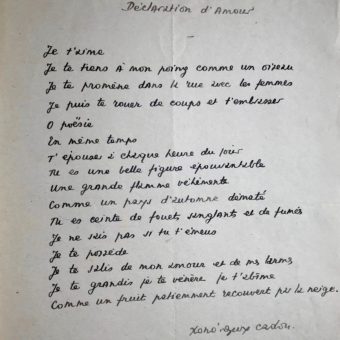 Déclaration d'Amour
Je t'aime
Je te tiens à mon poing comme un oiseau
Je te promène dans la rue avec les femmes
Je puis te rouer de coups et t'embrasser
O poësie
En même temps
T'épouser à chaque heure du jour
Tu es une belle figure épouvantable
Une grande flamme véhémente
Comme un pays d'automne démâté
Tu es ceinte de fouets sanglants et de fumées
Je ne sais pas si tu t'émeus
Je te possède
Je te salis de mon amour et de mes larmes
Je te grandis je te vénère je t'abîme
Comme un fruit patiemment recouvert par la neige.
René-Guy Cadou.